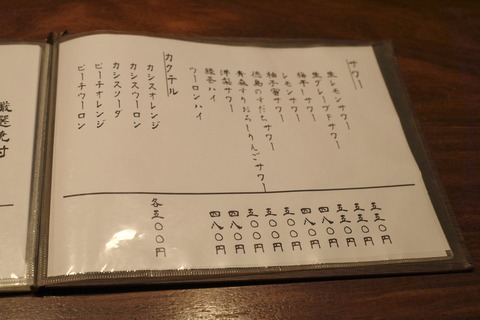 サワー
生レモンサワー 五五〇円
生グレープFサワー 五五〇円
梅干サワー 五五〇円
レモンサワー 四八〇円
柚子蜜サワー 四八〇円
徳島のすだちサワー 五〇〇円
青森すりおろしりんごサワー 五〇〇円
洋梨サワー 五〇〇円
緑茶ハイ 四八〇円
ウーロンハイ 四八〇円
カクテル
カシスオレンジ 各五〇〇円
カシスウーロン
カシスソーダ
ピーチオレンジ
ピーチウーロン
厳選焼